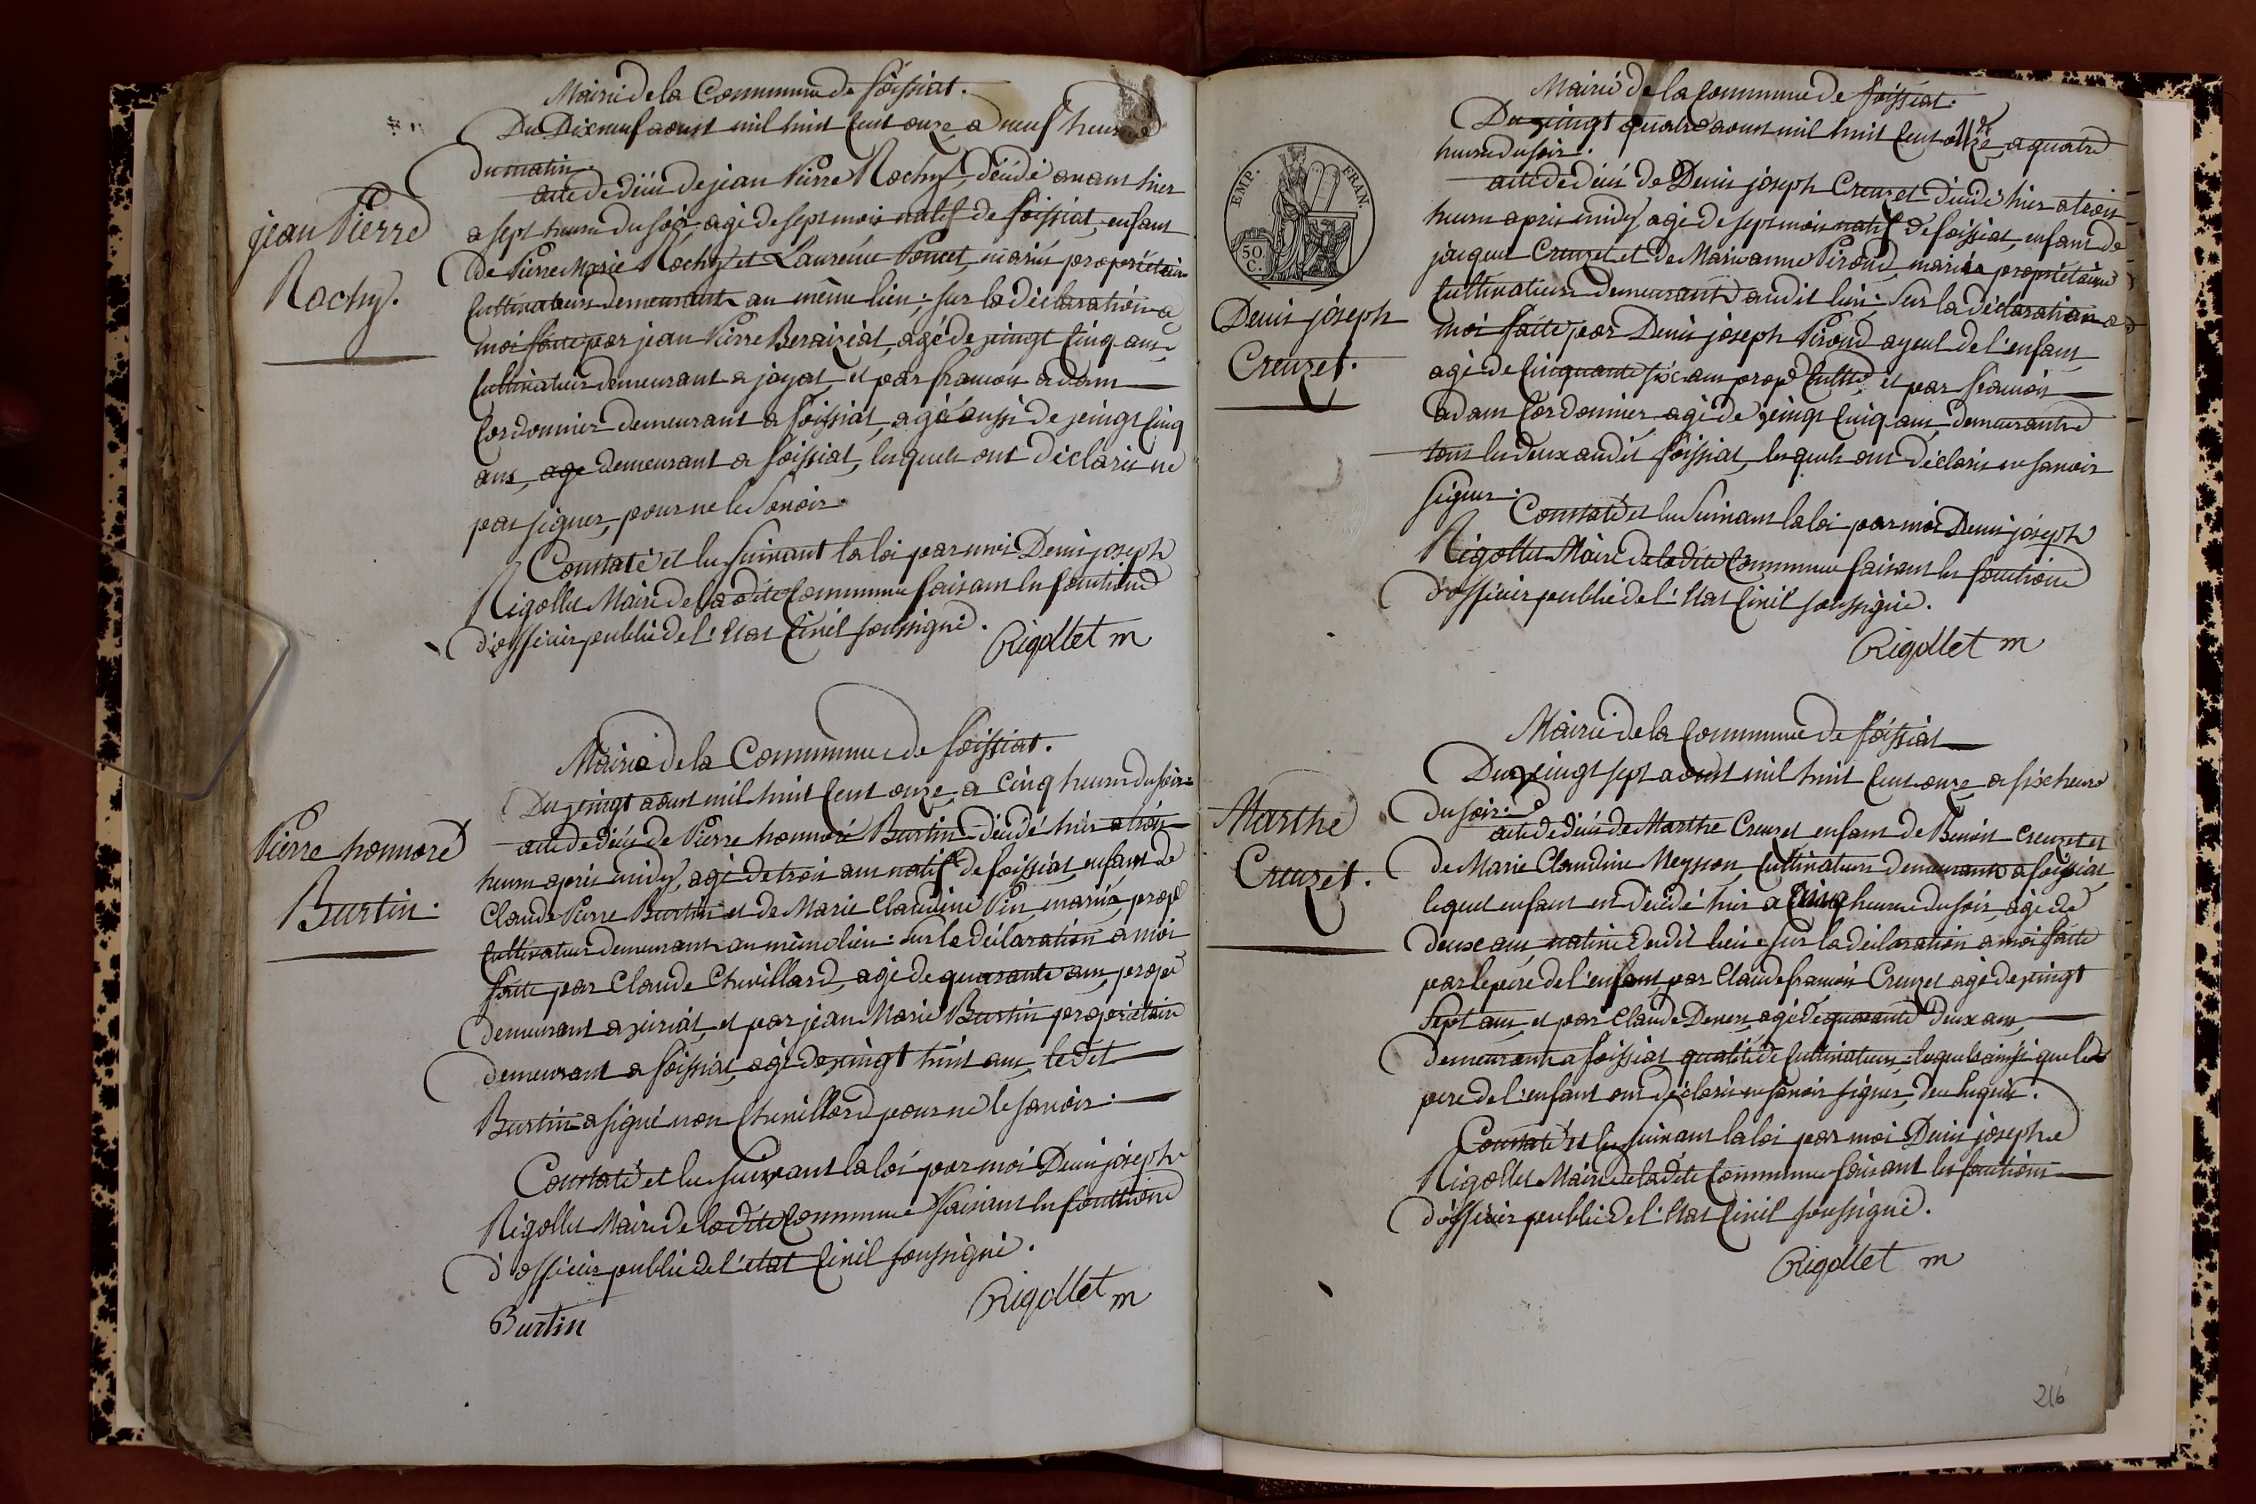 Mairie de la Commune de foissiat.
Du Dix neuf aoust mil huit cent onze a neuf heures
du matin.
acte de décés de jean Pierre Rochy, décédé avant hier
a sept heures du soir, agé de sept mois natif de foissiat, enfant
de Pierre Marie Rochy et Laurence Poncet, mariés proprietaires
cultivateurs demeurant au même lieu ; sur la déclaration a
moi faite par jean Pierre Beraiziat, agé de vingt cinq ans
cultivateur demeurant a jayat, et par francois adam
cordonnier demeurant a foissiat, agé aussi de vingt cinq
ans, age demeurant a foissiat, lesquels ont déclarés ne
pas signer, pour ne le savoir.
Constaté et lu suivant la loi par moi Denis joseph
Rigollet Maire de la dite Commune faisant les fonctions
d'officier public de l'Etat Civil soussigné.
Rigollet m
jean Pierre
Rochy.
Mairie de la Commune de foissiat.
Du vingt aoust mil huit cent onze, a cinq heures du soir
acte de décés de Pierre honnoré Burtin décédé hier a trois
heures aprés midy, agé de trois ans natif de foissiat, enfant de
Claude Pierre Burtin et de Marie Claudine Pin, mariés, prope
cultivateurs demeurant au même lieu : sur la déclaration a moi
faite par Claude Chevillard, agé de quarante ans, prope
demeurant a viriat, et par jean Marie Burtin proprietaire
demeurant a foissiat, agé de vingt huit ans, le dit
Burtin a signé non Chevillard pour ne le savoir.
Constaté et lu suivant la loi par moi Denis joseph
Rigollet Maire de la dite Commune faisant les fonctions
d'officier public de l'état Civil soussigné.
Rigollet m
Burtin
Pierre honnoré
Burtin.
Mairie de la Commune de foissiat.
Du vingt quatre aoust mil huit cent onze, a quatre
heures du soir.
acte de décés de Denis joseph Creuzet décédé hier a trois
heures aprés midy, agé de sept mois natif de foissiat, enfant de
jacques Creuzet et de Marie anne Piroud, mariés proprietaires
cultivateurs demeurant audit lieu : Sur la déclaration a
moi faite par Denis joseph Piroud ayeul de l'enfant,
agé de cinquante six ans prope cultr et par francois
adam Cordonnier, agé de vingt cinq ans, demeurants
tous les deux audit foissiat, lesquels ont déclarés ne savoir
signer.
Constaté et lu Suivant la loi par moi Denis joseph
Rigollet Maire de la dite Commune faisant les fonctions
d'officier public de l'Etat Civil soussigné.
Rigollet m
EMP. FRAN.
50. C.
Denis joseph
Creuzet.
Mairie de la Commune de foissiat
Du vingt sept aoust mil huit cent onze, a six heures
du soir.
acte de décés de Marthe Creuzet, enfant de Benoit Creuzet et
de Marie Claudine Meyson, Cultivateurs demeurants a foissiat
lequel enfant est décédé hier a Cinq heures du soir, agé de
deux ans, native dudit lieu, sur la déclaration a moi faite
par le pere de l'enfant, par Claude francois Creuzet agé de vingt
sept ans, et par Claude Deneu, agé de quarante deux ans,
demeurants a foissiat qualité de cultivateurs, lesquels ainsi que le
pere de l'enfant ont déclarés ne savoir signer, de ce requis.
Constaté et lu suivant la loi par moi Denis joseph
Rigollet Maire de la dite Commune faisant les fonctions
d'officier public de l'Etat Civil soussigné.
Rigollet m
Marthe
Creuzet.
216